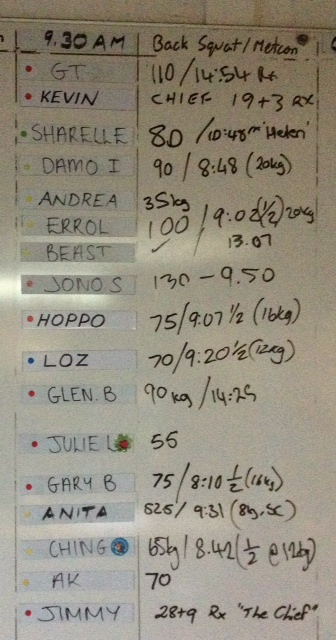 9.30 AM Back Squat/Metcon
GT 110/14:54 Rx
KEVIN CHIEF 19+3 RX
SHARELLE 80 /10:48m 'Helen'
DAMO I 90 / 8:48 (20kg)
ANDREA 35kg
ERROL 100 / 9:02 (½) 20kg
BEAST ✓ / 13.07
JONO S 130 - 9.50
HOPPO 75/9:07 ½ (16kg)
LOZ 70/9:20 ½ (12kg)
GLEN. B 90kg /14:25
JULIE L 55
GARY B 75 / 8:10 ½ (16kg)
ANITA 525/ 9:31 (8kg, SC)
CHING 65kg/ 8.42 (½ @ 12kg)
AK 70
JIMMY 28+9 Rx "The Chief"